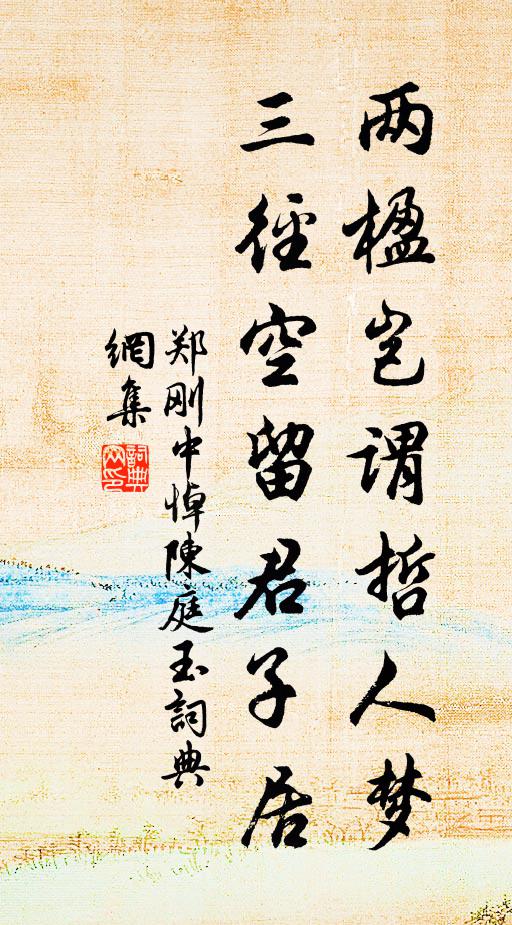 两楹岂谓哲人梦
三徑空留君子居
郑刚中悼陳庭玉詞典
網集
詞典
网印